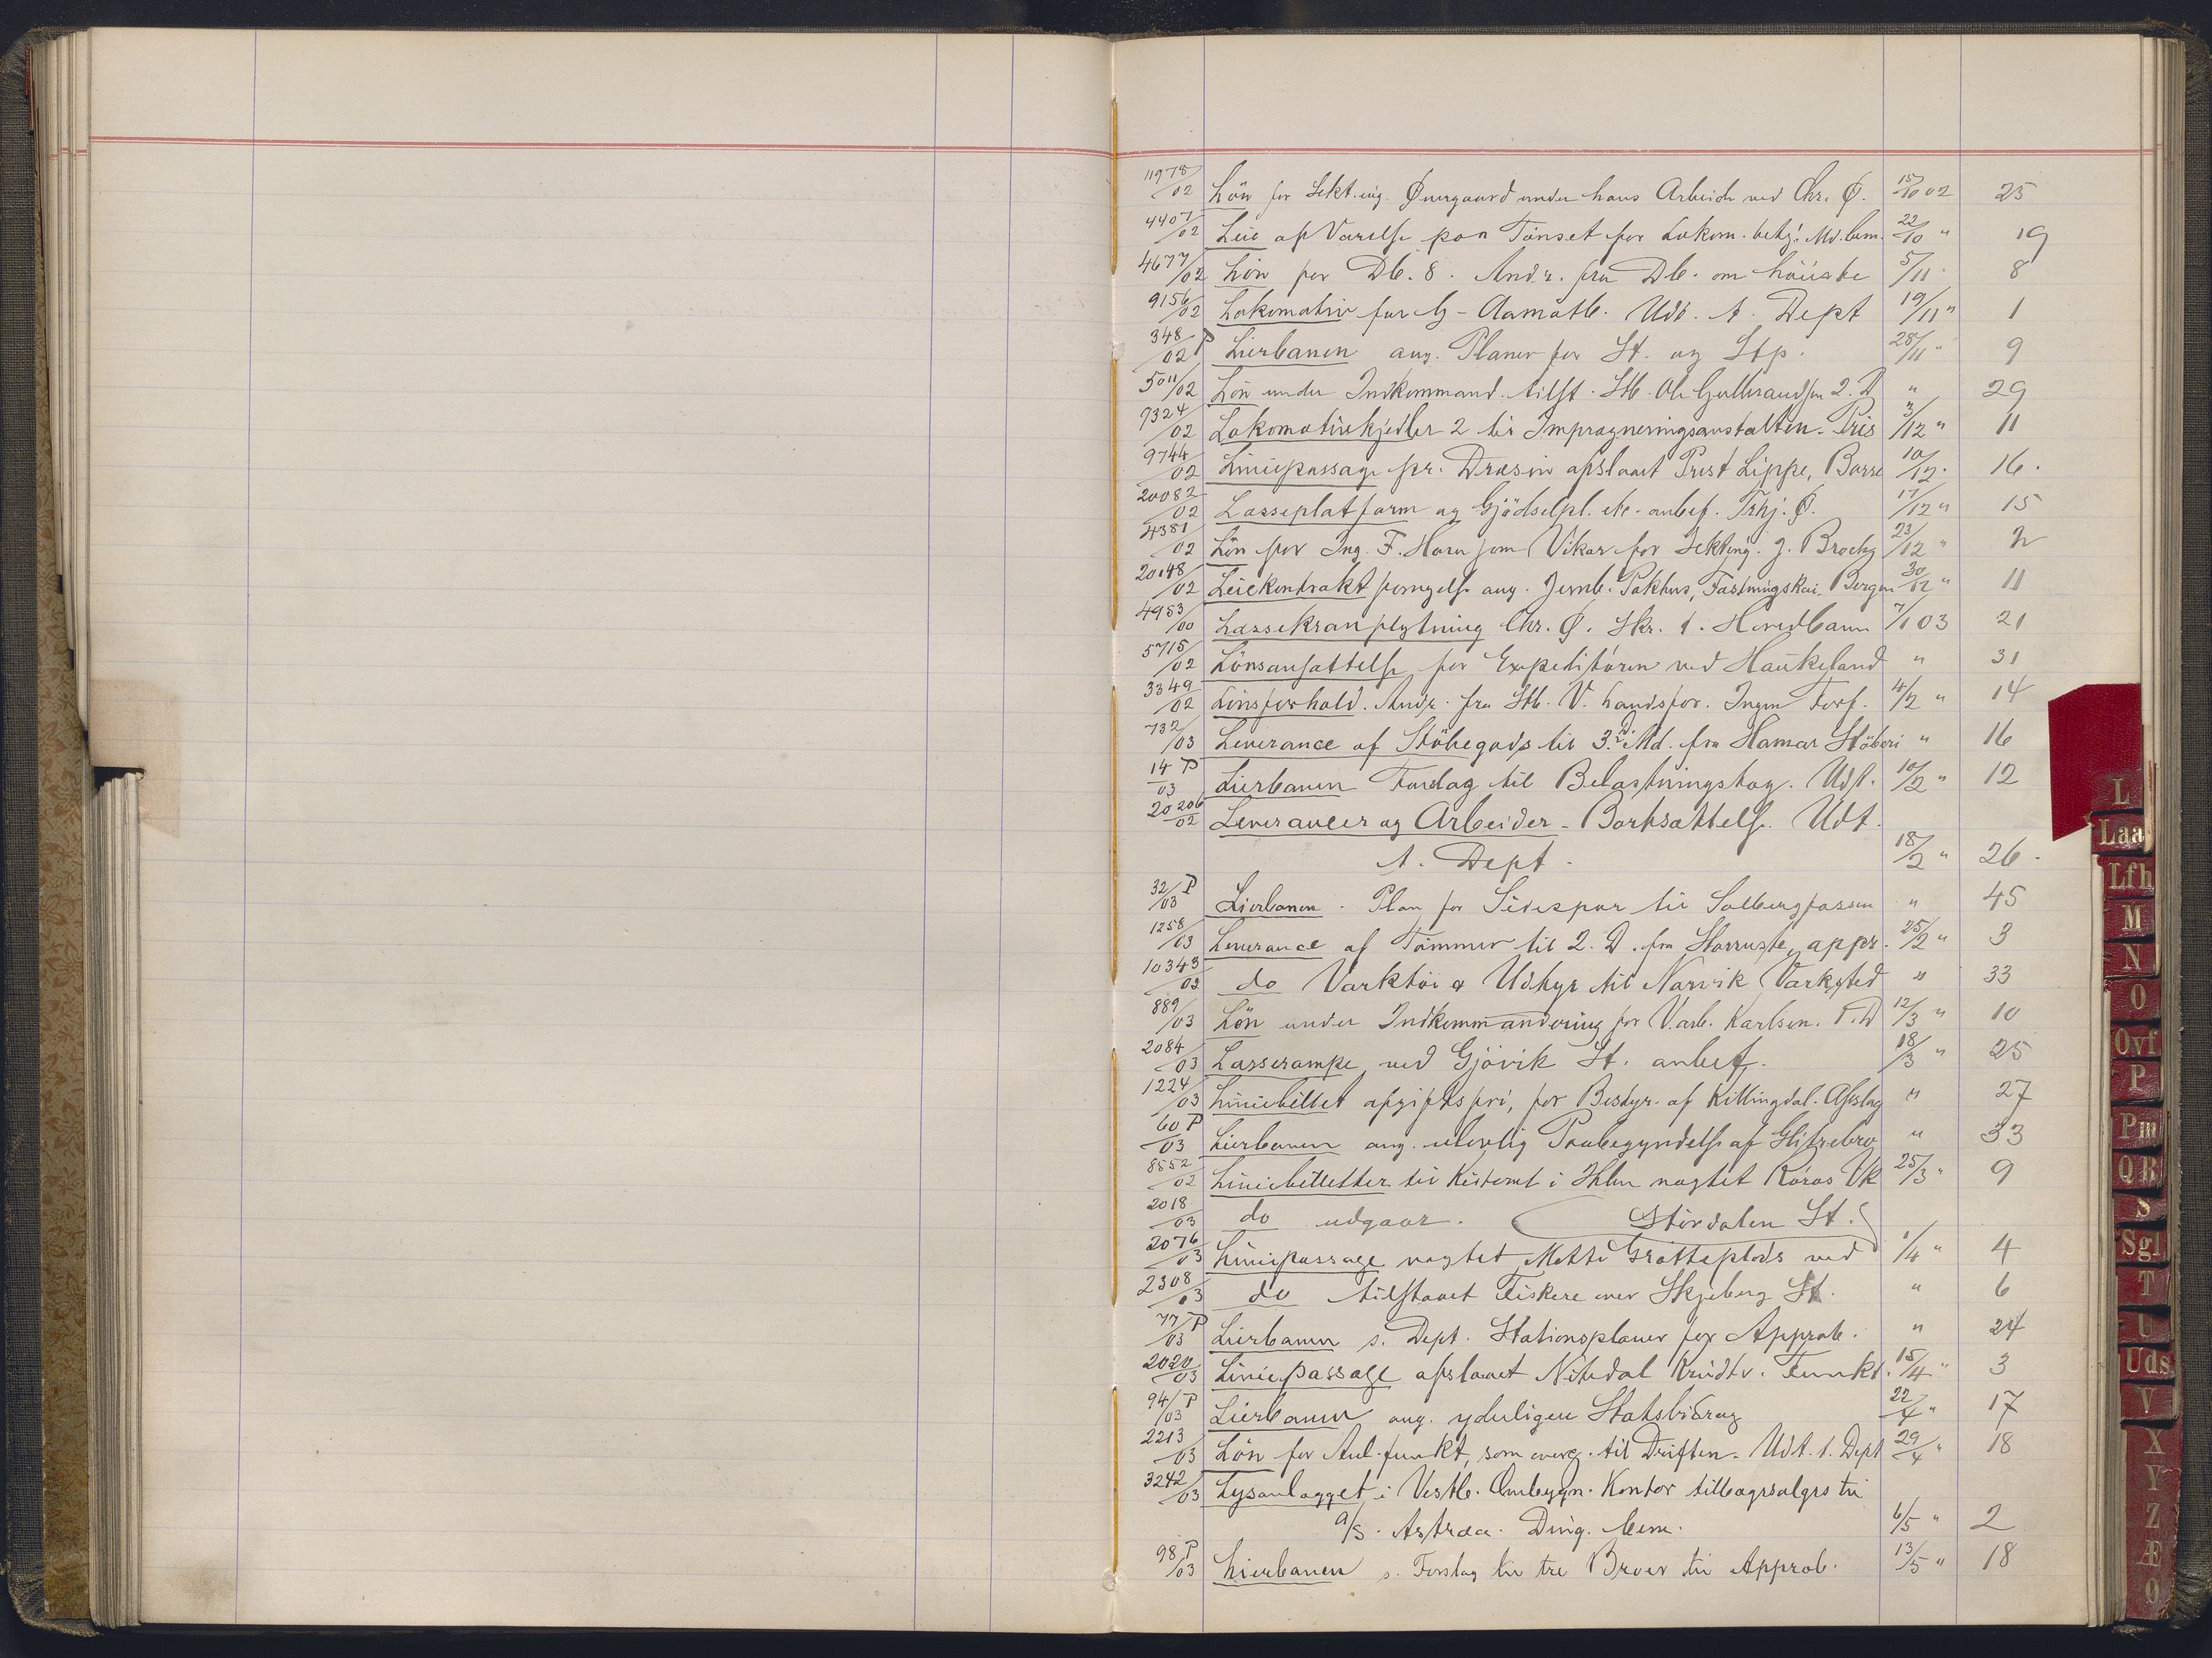 11978/02 Lön for Sekt.ing. Øvergaard under hans Arbeide ved Chr. Ø. 15/10 02 25
4407/02 Leie af Værelse paa Tönset for Lokom. betj. Md. bem. 22/10 " 19
4677/02 Lön for Db. 8. Andr. fra Db. om höieste 5/11 " 8
9156/02 Lokomotiv for G-Aamotb. Udt. t. Dept 19/11 " 1
348/02 P Lierbanen ang. Planer for St. og Stp. 28/11 " 9
5011/02 Lön under Indkommand. tilst. Stb. Ole Gulbrandsen 2. D " 29
9324/02 Lokomotivkjedler 2 til Imprægneringsanstalten. Pris 3/12 " 11
9744/02 Liniepassage pr. Dræsin afslaaet Prest Lippe, Borse 10/12 " 16.
20082/02 Lasseplatform og Gjödselpl. etc. anbef. Trhj. Ø. 17/12 " 15
4381/02 Lön for Ing. F. Horn som Vikar for Sekting. J. Broch 23/12 " 2
20148/02 Leiekontrakt fornyelse ang. Jernb. Pakhus, Fæstningskai, Bergen 30/12 " 11
4953/00 Lassekranflytning Chr. Ø. Skr. t. Hovedbanen 7/1 03 21
5715/02 Lönsansættelse for Expeditören ved Haukeland " 31
3349/02 Lönsforhold. Andr. fra Stb. V. Landsfor. Ingen Forf. 4/2 " 14
732/03 Leverance af Stöbegods til 3. D. Md. fra Hamar Stöberi " 16
14/03 P Lierbanen Forslag til Belastningstog. Udt. 10/2 " 12
20206/02 Leverancer og Arbeider - Bortsættelse. Udt.
t. Dept. 18/2 " 26.
32/03 P Lierbanen. Plan for Sidespor til Solbergfossen " 45
1258/03 Leverance af Tömmer til 2. D. fra Storruste, appr. 25/2 " 3
10343/02 do Værktöi & Udstyr til Narvik Værksted " 33
889/03 Lön under Indkommandering for V.arb. Karlsen. 1. D 12/3 " 10
2084/03 Lasserampe ved Gjövik St. anbef. 18/3 " 25
1224/03 Liniebillet afgiftsfri, for Bestyr. af Killingdal. Afslag " 27
60/03 P Lierbanen ang. ulovlig Paabegyndelse af Glitrebro " 33
8552/02 Liniebilletter til Kistemt i Hlm nægtet Röros Vk 25/3 " 9
2018/03 do udgaar. Stördalen St.
2076/03 Liniepassage nægtet Metti Grötteplads ved 1/4 " 4
2308/03 do tilstaaet Fiskere over Skjeberg St. " 6
77/03 P Lierbanen s. Dept. Stationsplaner for Approb. " 24
2020/03 Liniepassage afslaaet Nitedal Krudtv. Funkt. 15/4 " 3
94/03 P Lierbanen ang. yderligere Statsbidrag 22/4 " 17
2213/03 Lön for Anl. funkt, som overg. til Driften. Udt. t. Dept 29/4 " 18
3242/03 Lysanlægget i Vestb. Ombygn. Kontor tilbagesælges til
A/S. Astræa. Ding. bem. 6/5 " 2
98/03 P Lierbanen s. Forslag til tre Broer til Approb. 13/5 " 18
L
Laa
Lfh
M
N
O
Ovf
P
Pm
QR
S
Sgl
T
U
Uds
V
X
Y
Z
Æ
Ø